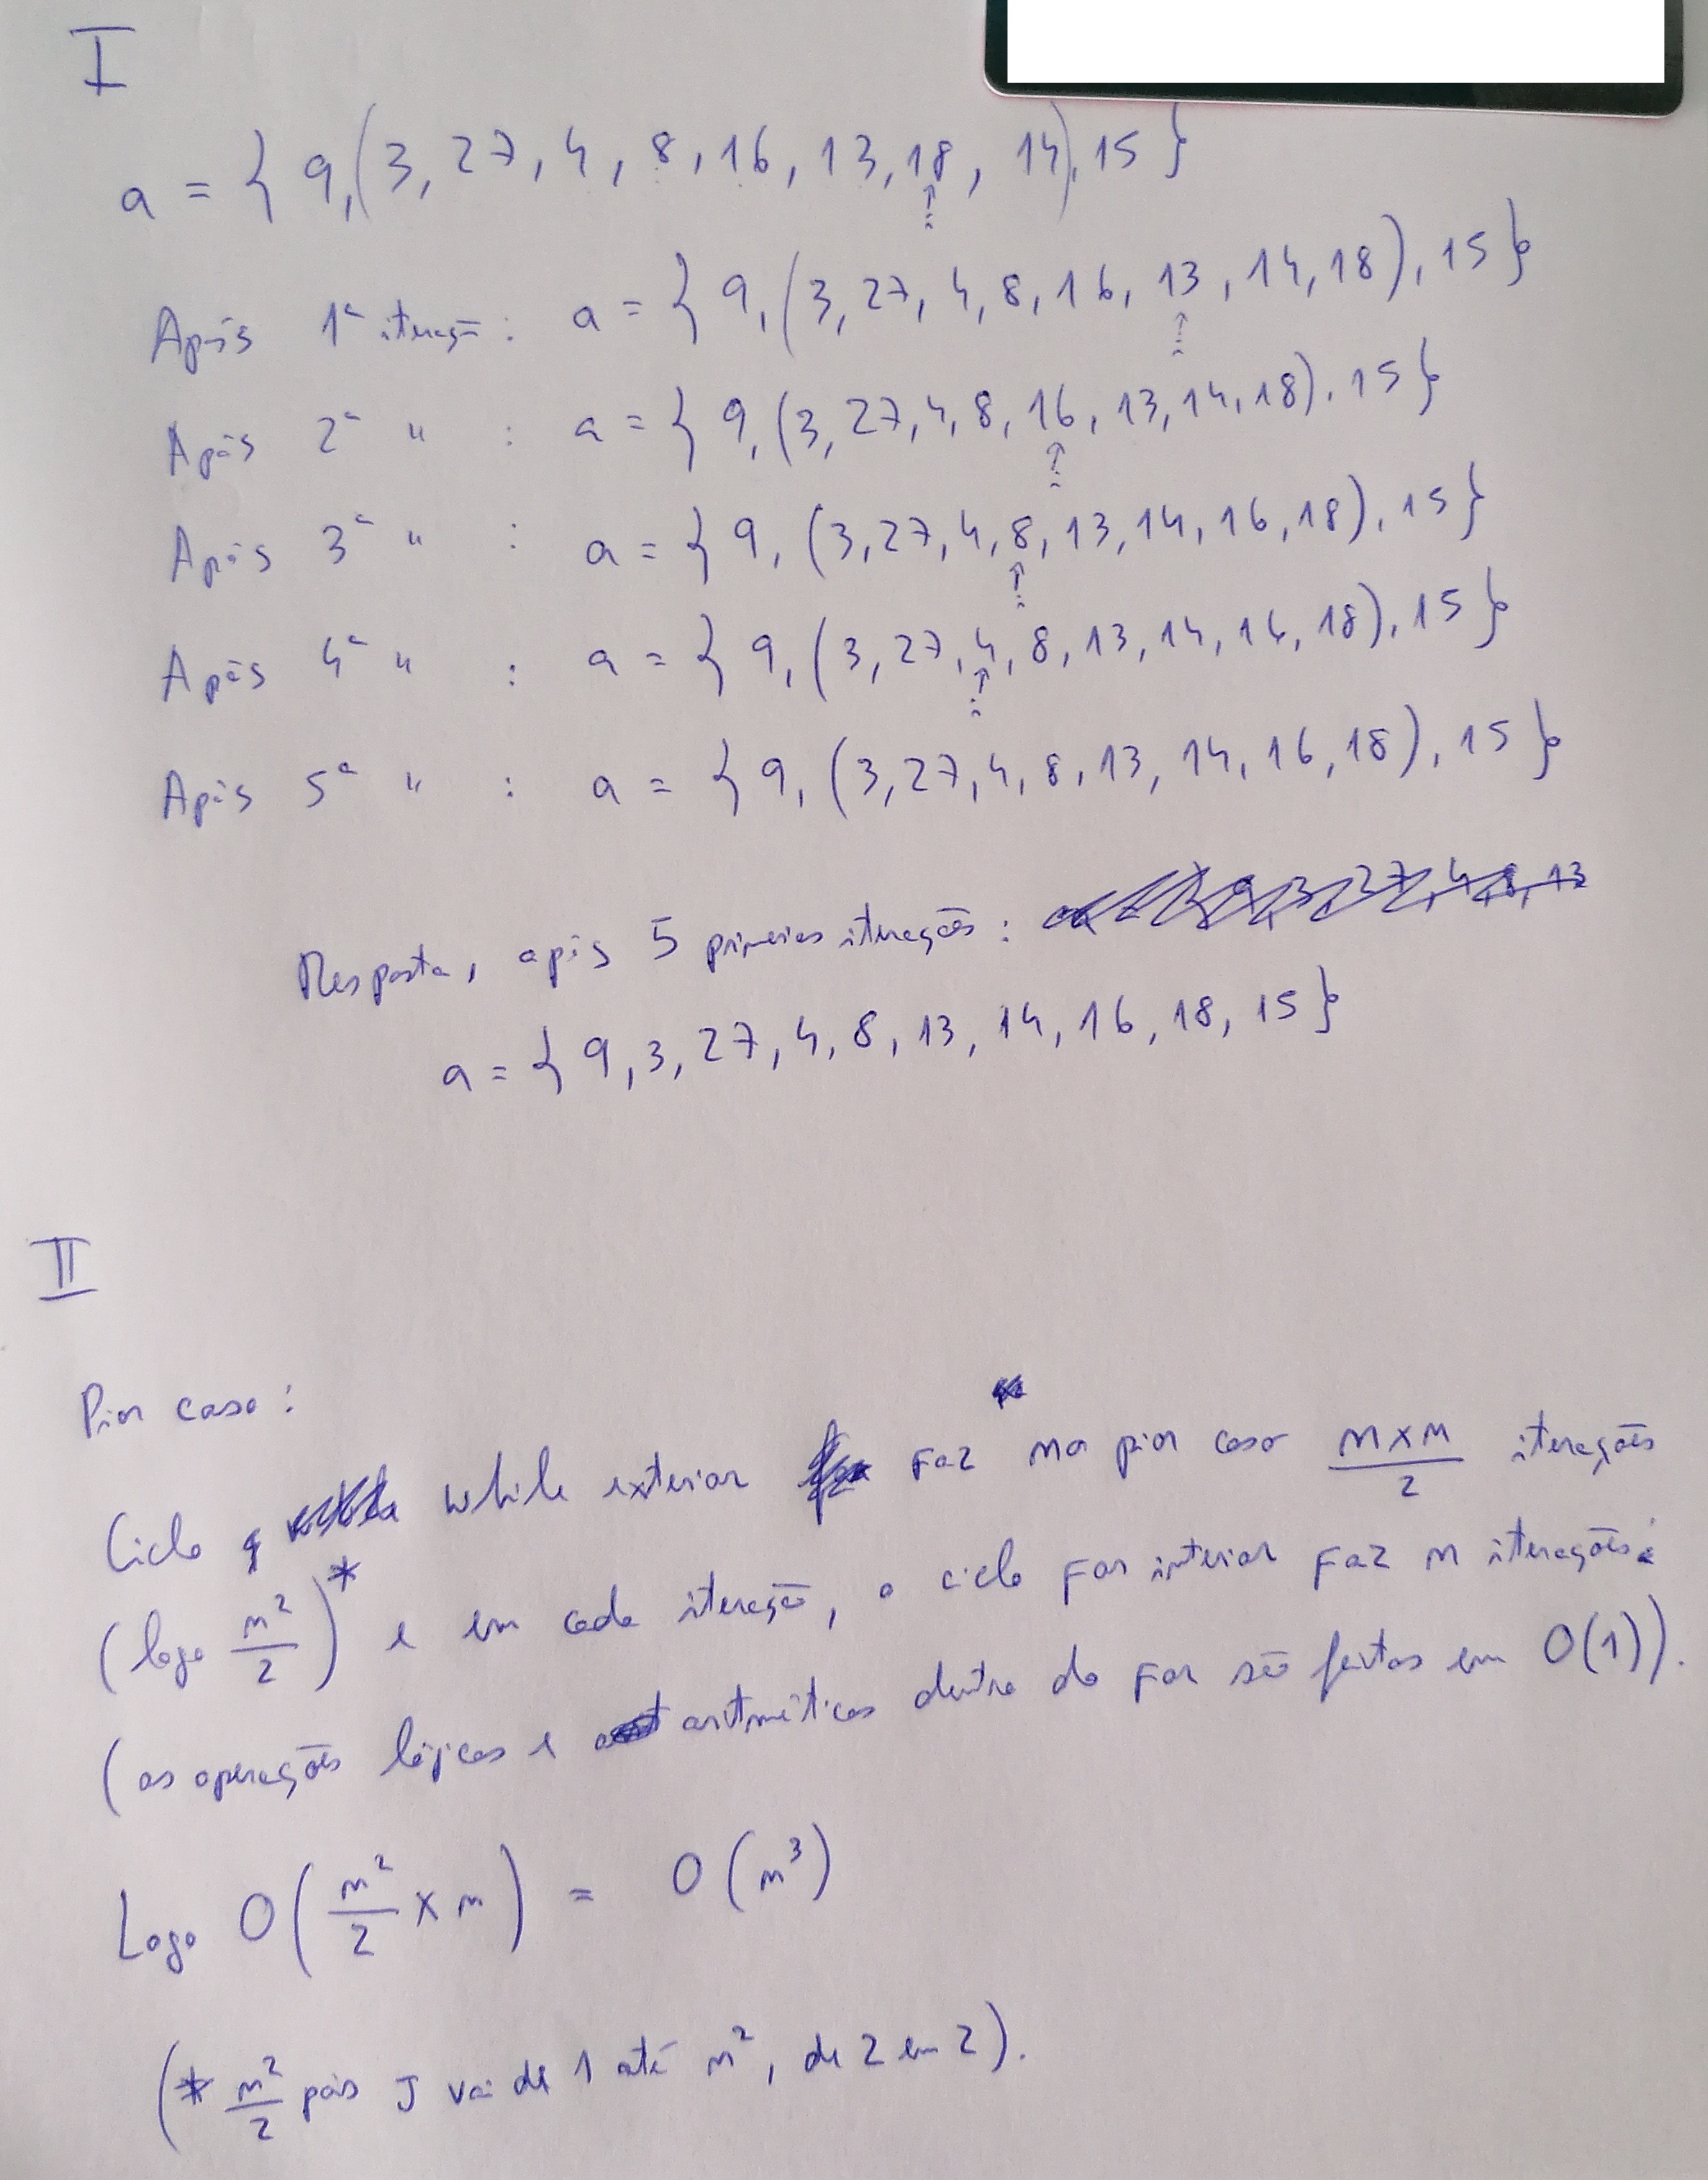 I
a = { 9, (3, 27, 4, 8, 16, 13, 18, 14), 15 }
Após 1ª iteração : a = { 9, (3, 27, 4, 8, 16, 13, 14, 18), 15 }
Após 2ª " : a = { 9, (3, 27, 4, 8, 16, 13, 14, 18), 15 }
Após 3ª " : a = { 9, (3, 27, 4, 8, 13, 14, 16, 18), 15 }
Após 4ª " : a = { 9, (3, 27, 4, 8, 13, 14, 16, 18), 15 }
Após 5ª " : a = { 9, (3, 27, 4, 8, 13, 14, 16, 18), 15 }
Resposta, após 5 primeiras iterações : 9, 3, 27, 4, 8, 13
a = { 9, 3, 27, 4, 8, 13, 14, 16, 18, 15 }
II
Pior caso :
Ciclo while exterior Faz no pior caso n×n/2 iterações
(logo n²/2)* e em cada iteração, o ciclo For interior Faz n iterações
(as operações lógicas e aritméticas dentro do For são feitas em O(1)).
Logo O(n²/2 × n) = O(n³)
(* n²/2 pois J vai de 1 até n², de 2 em 2).